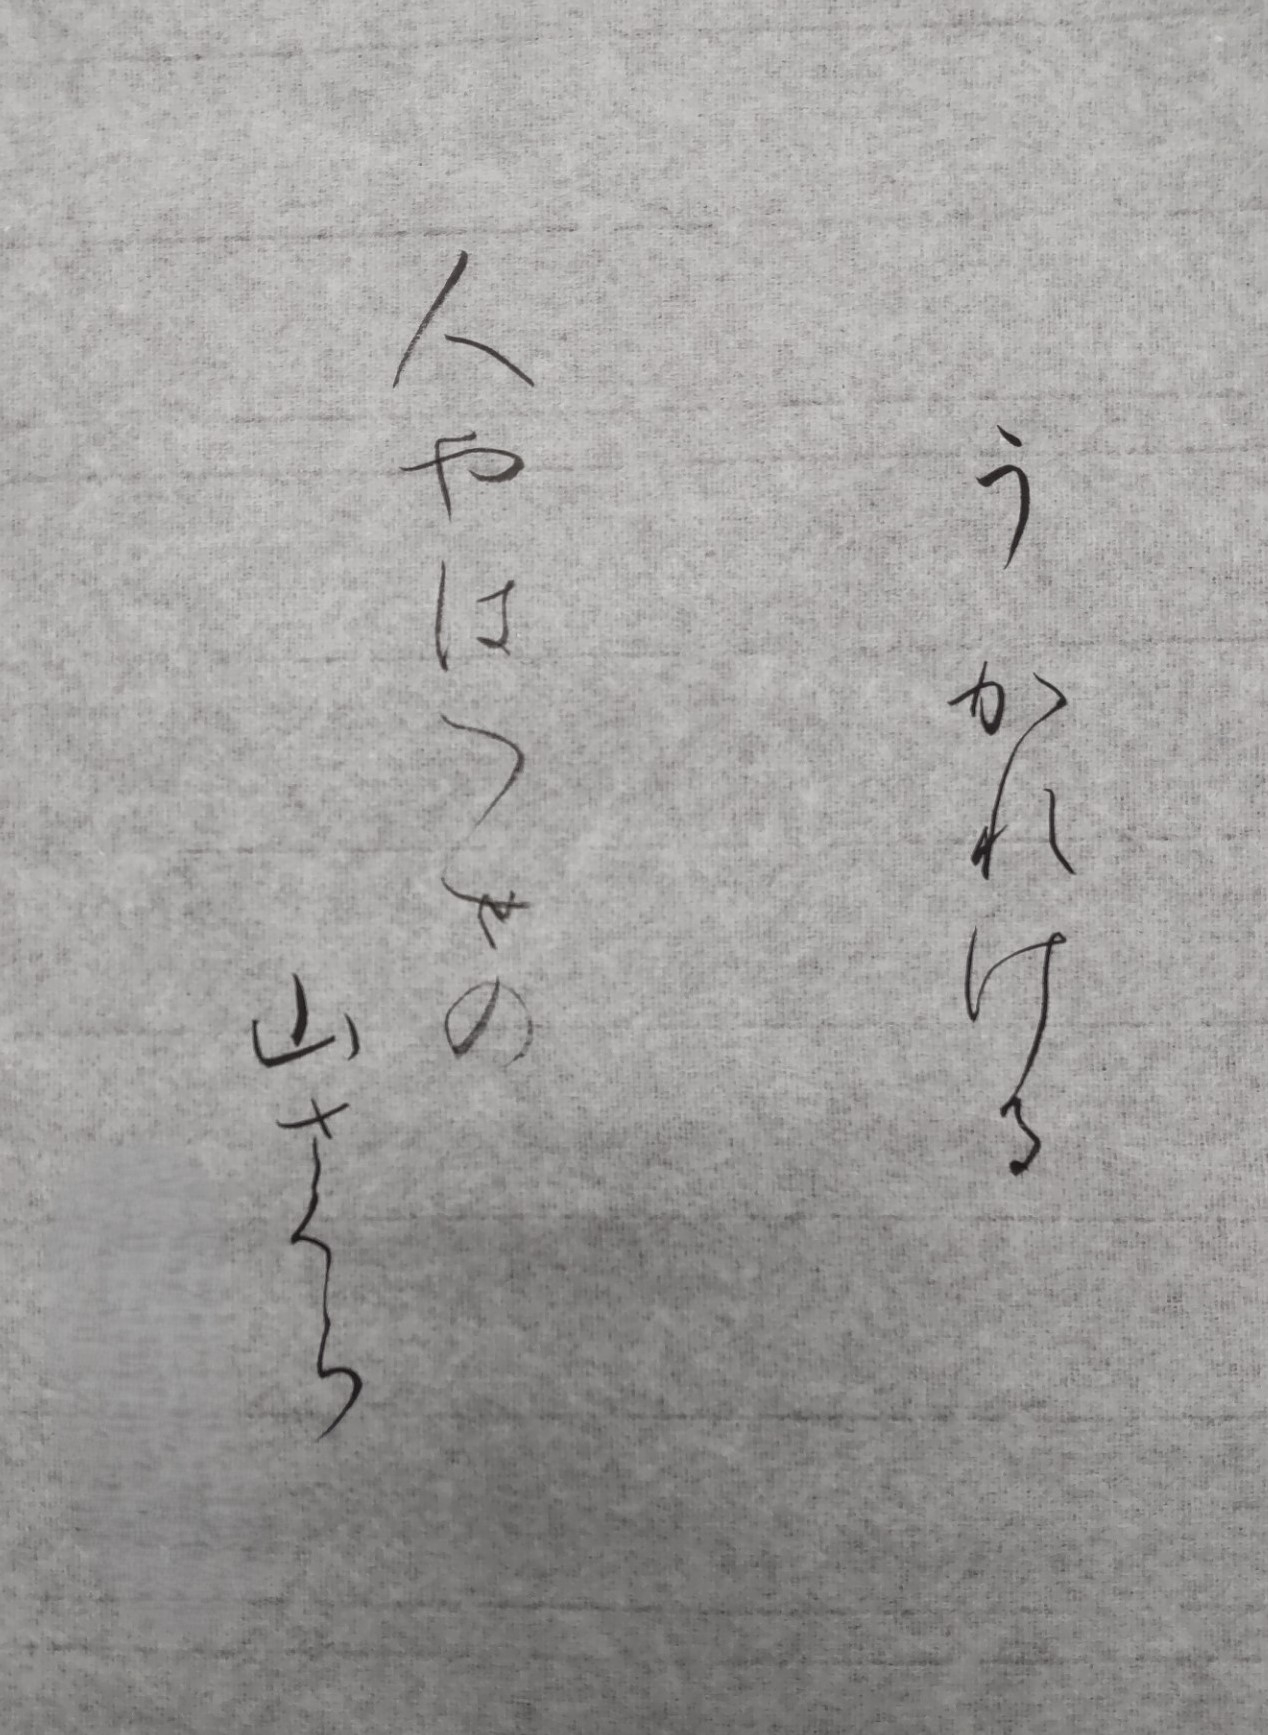 うかれける
人やはつせの
山さくら